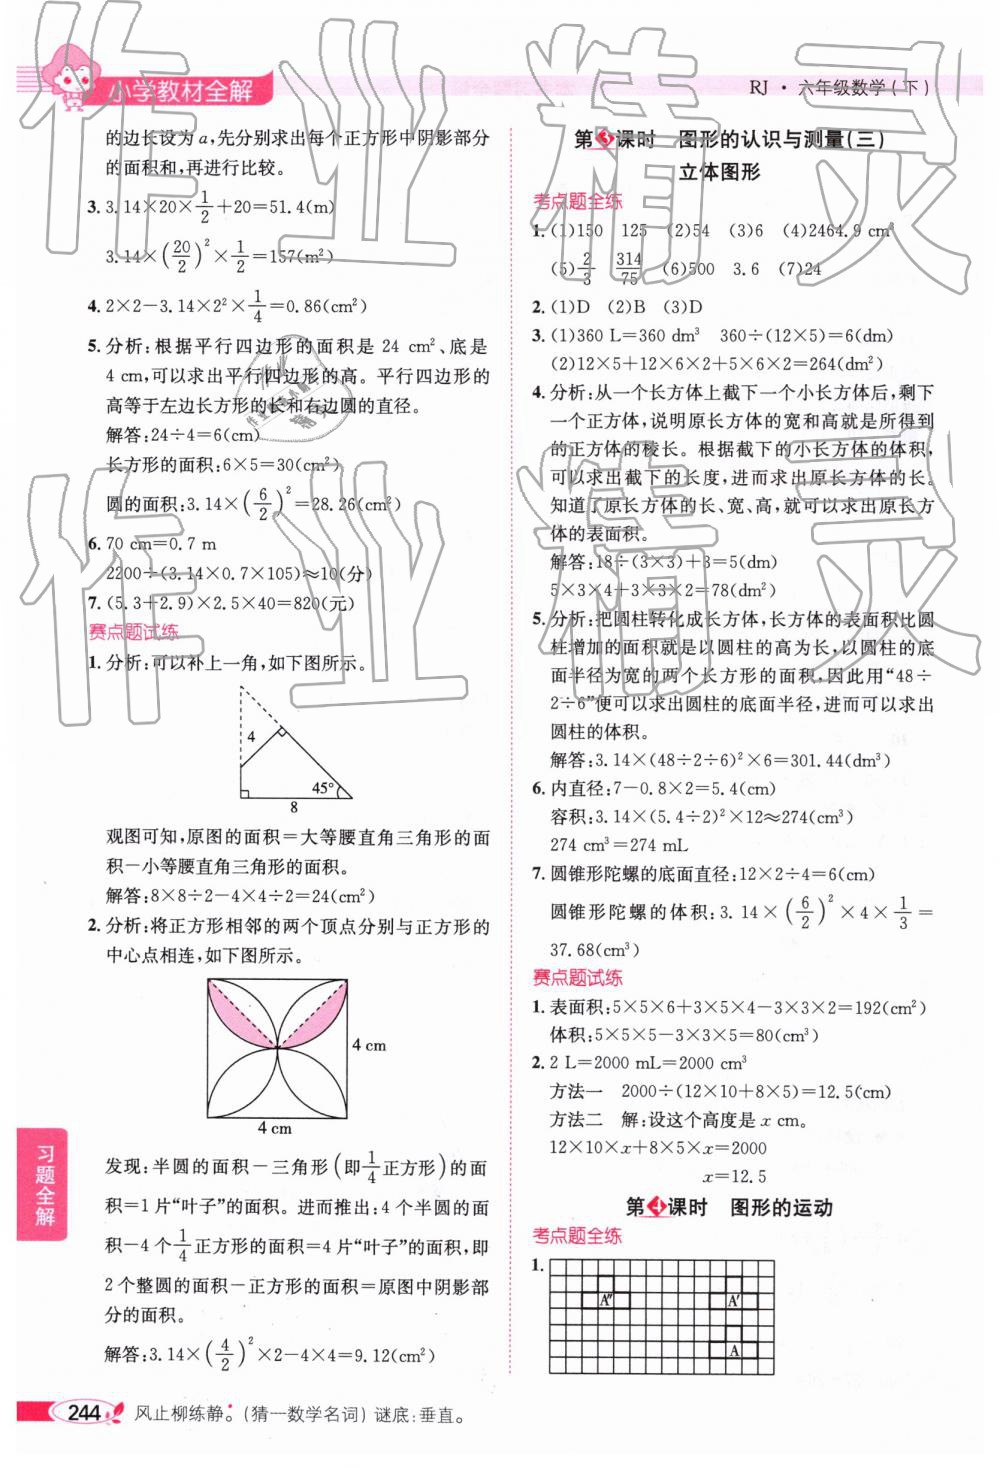 小学教材全解
RJ·六年级数学(下)
的边长设为a,先分别求出每个正方形中阴影部分
的面积和,再进行比较。
3. 3.14×20×1/2+20=51.4(m)
3.14×(20/2)²×1/2=157(m²)
4. 2×2-3.14×2²×1/4=0.86(cm²)
5. 分析:根据平行四边形的面积是 24 cm²、底是
4 cm,可以求出平行四边形的高。平行四边形的
高等于左边长方形的长和右边圆的直径。
解答:24÷4=6(cm)
长方形的面积:6×5=30(cm²)
圆的面积:3.14×(6/2)²=28.26(cm²)
6. 70 cm=0.7 m
2200÷(3.14×0.7×105)≈10(分)
7. (5.3+2.9)×2.5×40=820(元)
赛点题试练
1. 分析:可以补上一角,如下图所示。
4
45°
8
观图可知,原图的面积=大等腰直角三角形的面
积-小等腰直角三角形的面积。
解答:8×8÷2-4×4÷2=24(cm²)
2. 分析:将正方形相邻的两个顶点分别与正方形的
中心点相连,如下图所示。
4 cm
4 cm
发现:半圆的面积-三角形(即1/4正方形)的面
积=1片“叶子”的面积。进而推出:4个半圆的面
积-4个1/4正方形的面积=4片“叶子”的面积,即
2个整圆的面积-正方形的面积=原图中阴影部
分的面积。
解答:3.14×(4/2)²×2-4×4=9.12(cm²)
第3课时 图形的认识与测量(三)
立体图形
考点题全练
1. (1)150 125 (2)54 (3)6 (4)2464.9 cm²
(5)2/3 314/75 (6)500 3.6 (7)24
2. (1)D (2)B (3)D
3. (1)360 L=360 dm³ 360÷(12×5)=6(dm)
(2)12×5+12×6×2+5×6×2=264(dm²)
4. 分析:从一个长方体上截下一个小长方体后,剩下
一个正方体,说明原长方体的宽和高就是所得到
的正方体的棱长。根据截下的小长方体的体积,
可以求出截下的长度,进而求出原长方体的长。
知道了原长方体的长、宽、高,就可以求出原长方
体的表面积。
解答:18÷(3×3)+3=5(dm)
5×3×4+3×3×2=78(dm²)
5. 分析:把圆柱转化成长方体,长方体的表面积比圆
柱增加的面积就是以圆柱的高为长,以圆柱的底
面半径为宽的两个长方形的面积,因此用“48÷
2÷6”便可以求出圆柱的底面半径,进而可以求出
圆柱的体积。
解答:3.14×(48÷2÷6)²×6=301.44(dm³)
6. 内直径:7-0.8×2=5.4(cm)
容积:3.14×(5.4÷2)²×12≈274(cm³)
274 cm³=274 mL
7. 圆锥形陀螺的底面直径:12×2÷4=6(cm)
圆锥形陀螺的体积:3.14×(6/2)²×4×1/3=
37.68(cm³)
赛点题试练
1. 表面积:5×5×6+3×5×4-3×3×2=192(cm²)
体积:5×5×5-3×3×5=80(cm³)
2. 2 L=2000 mL=2000 cm³
方法一 2000÷(12×10+8×5)=12.5(cm)
方法二 解:设这个高度是x cm。
12×10×x+8×5×x=2000
x=12.5
第4课时 图形的运动
考点题全练
1.
A″
A′
A
习题全解
244 风止柳练静。(猜一数学名词) 谜底:垂直。
作业精灵
作业精灵